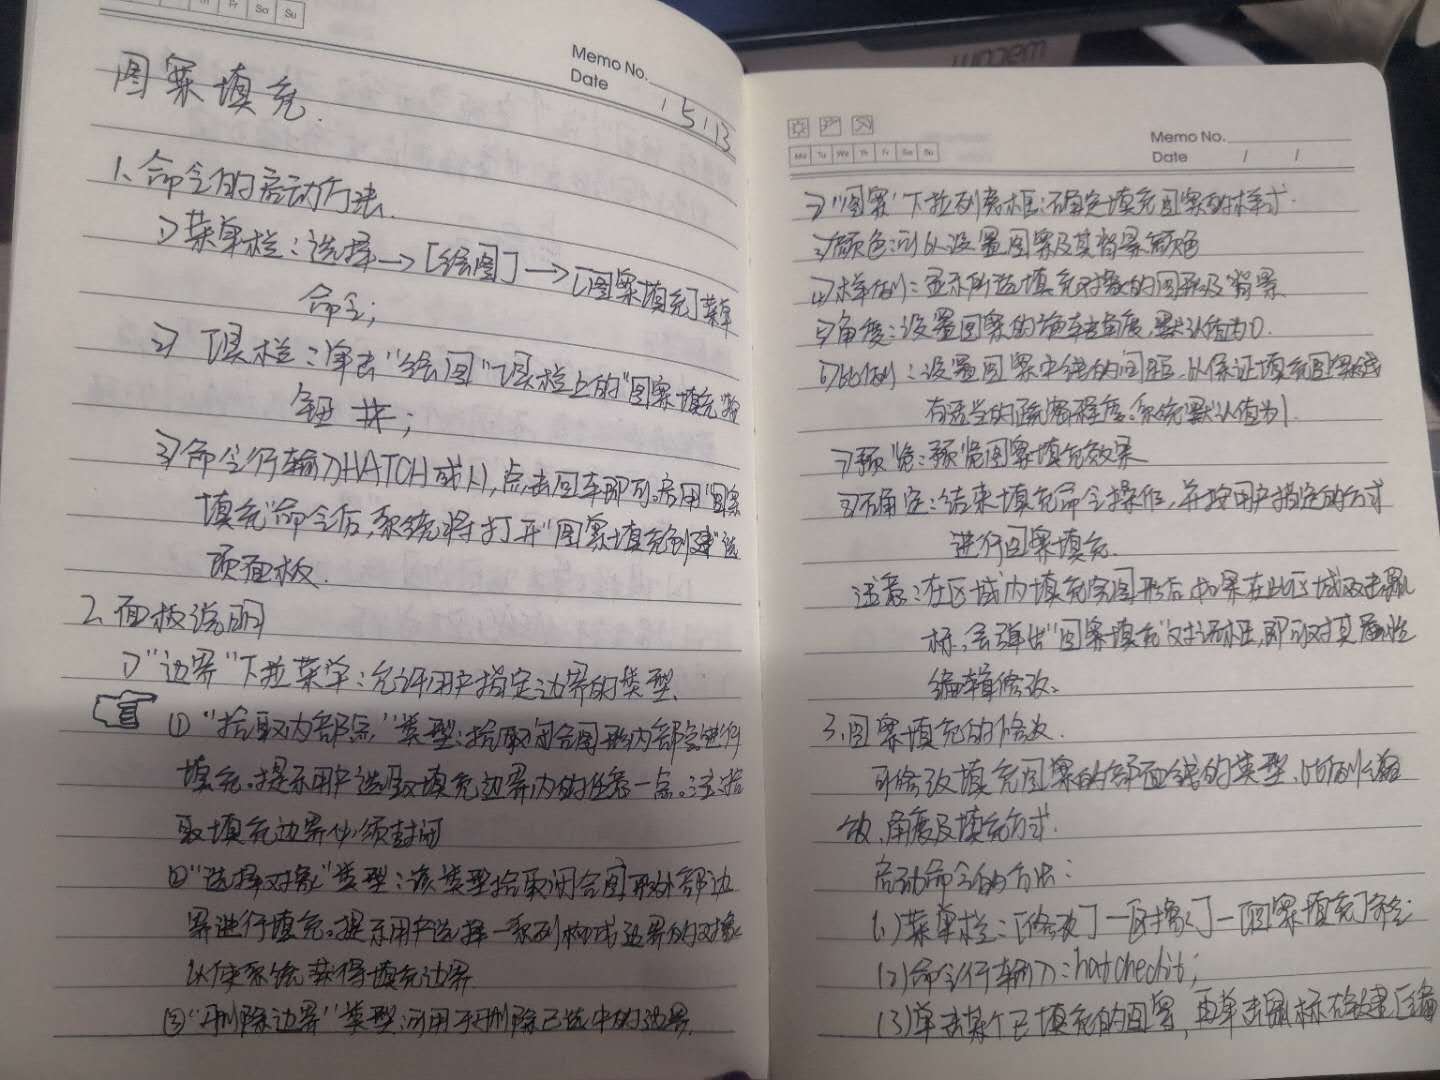 Fr Sa Su
Memo No.
Date / 5 / 13
图案填充.
1、命令的启动方法、
1) 菜单栏：选择→[绘图]→[图案填充]菜单
命令；
2) 工具栏：单击“绘图”工具栏上的“图案填充”按
钮；
3) 命令行输入HATCH或H，点击回车即可。启用“图案
填充”命令后，系统将打开“图案填充创建”选
项面板.
2、面板说明
1) “边界”下拉菜单：允许用户指定边界的类型.
① “拾取内部点”类型：拾取闭合图形内部点进行
填充。提示用户选取填充边界内的任意一点。注：拾
取填充边界必须封闭
② “选择对象”类型：该类型拾取闭合图形外部边
界进行填充。提示用户选择一系列构成边界的对象
以使系统获得填充边界
③ “删除边界”类型：可用于删除已选中的边界.
Mo Tu We Th Fr Sa Su
Memo No.
Date / /
2) “图案”下拉列表框：确定填充图案的样式.
3) 颜色：可以设置图案及其背景颜色
4) 样例：显示所选填充对象的图形及背景
5) 角度：设置图案的旋转角度，默认值为0.
6) 比例：设置图案中线的间距，以保证填充图案线
有适当的疏密程度.系统默认值为1.
7) 预览：预览图案填充效果
8) 确定：结束填充命令操作，并按用户指定的方式
进行图案填充.
注意：在区域内填充完图形后，如果在此区域双击鼠
标，会弹出“图案填充”对话框，即可对其属性
编辑修改。
3、图案填充的修改.
可修改填充图案的剖面线的类型、比例缩
放、角度及填充方式.
启动命令的方法：
(1) 菜单栏：[修改]—[对象]—[图案填充]命令；
(2) 命令行输入：hatchedit；
(3) 单击某个已填充的图案，再单击鼠标右键[编